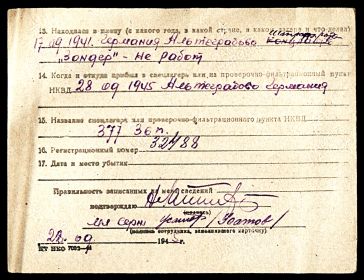 13. Находился в плену (с какого года, в какой стране, в каких лагерях и что делал)
17 09 1941. Германия Альтеграбово
"Зондер" - Не работ
14. Когда и откуда прибыл в спецлагерь или на проверочно-фильтрационный пункт
НКВД 28 09 1945 Альтеграбово Германия
15. Название спецлагеря или проверочно-фильтрационного пункта НКВД
377 Зап.
16. Регистрационный номер 32488
17. Дата и место убытия
Правильность записанных на меня сведений
подтверждаю
(подпись)
(подпись сотрудника, заполнившего карточку)
28. 09. 194